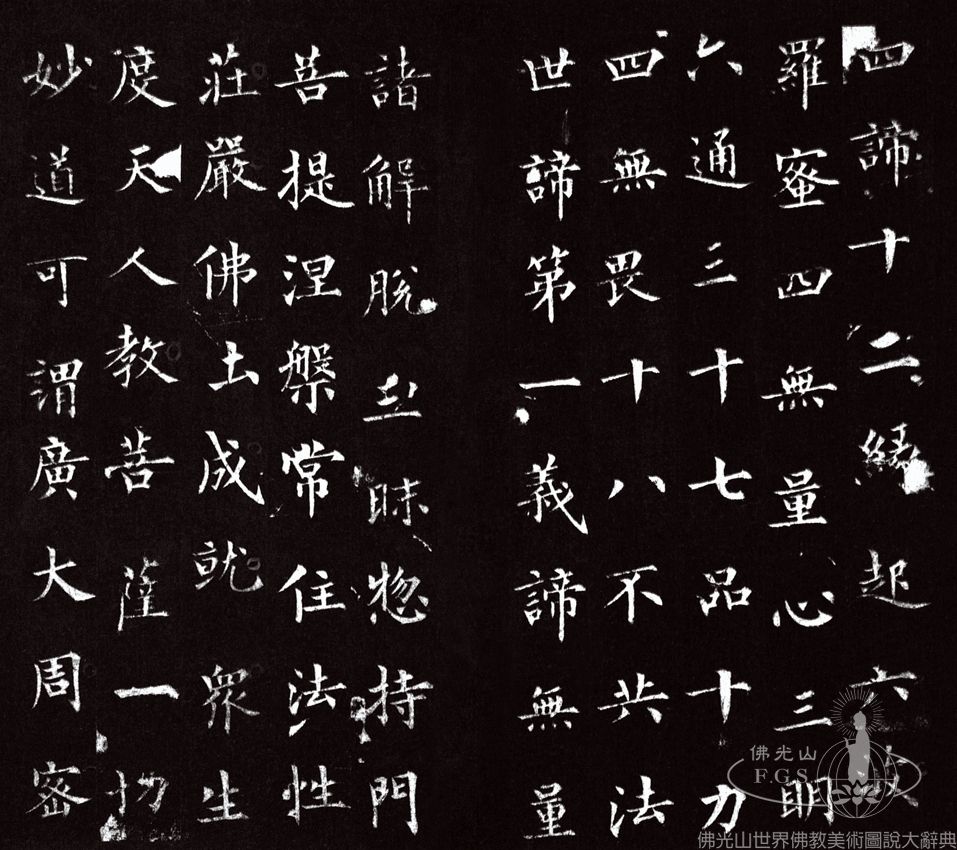 四諦十二緣起六波
羅蜜四無量心三明
六通三十七品十力
四無畏十八不共法
世諦第一義諦無量
諸解脫三昧惣持門
菩提涅槃常住法性
莊嚴佛土成就眾生
度天人教菩薩一切
妙道可謂廣大周密
佛光山
F.G.S.
佛光山世界佛教美術圖說大辭典